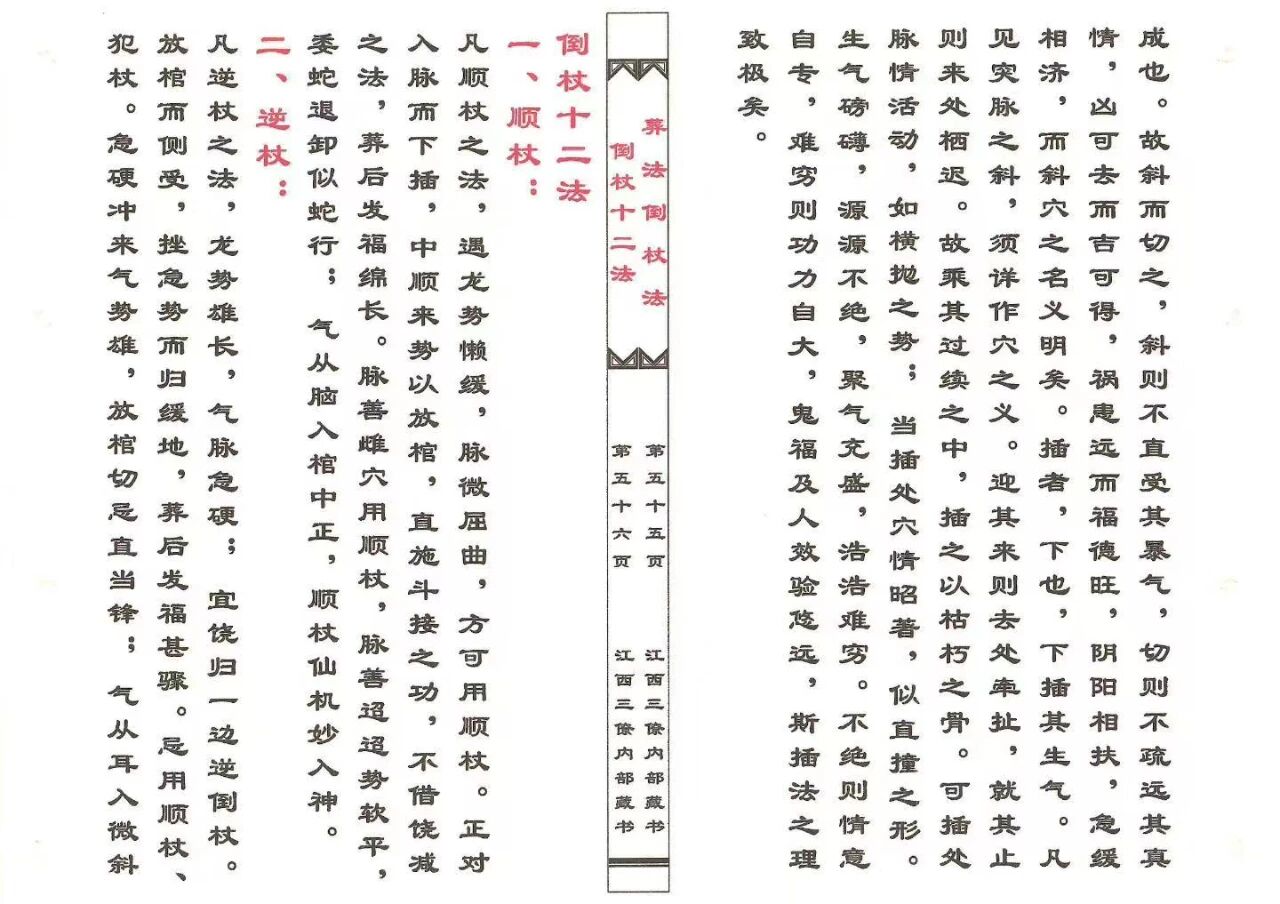 成也。故斜而切之，斜则不直受其暴气，切则不疏远其真
情，凶可去而吉可得，祸患远而福德旺，阴阳相扶，急缓
相济，而斜穴之名义明矣。插者，下也，下插其生气。凡
见突脉之斜，须详作穴之义。迎其来则去处牵扯，就其止
则来处栖迟。故乘其过续之中，插之以枯朽之骨。可插处
脉情活动，如横抛之势；当插处穴情昭著，似直撞之形。
生气磅礴，源源不绝，聚气充盛，浩浩难穷。不绝则情意
自专，难穷则功力自大，鬼福及人效验悠远，斯插法之理
致极矣。
葬法倒杖法 第五十五页 江西三僚内部藏书
倒杖十二法 第五十六页 江西三僚内部藏书
倒杖十二法
一、顺杖：
凡顺杖之法，遇龙势懒缓，脉微屈曲，方可用顺杖。正对
入脉而下插，中顺来势以放棺，直施斗接之功，不借饶减
之法，葬后发福绵长。脉善雌穴用顺杖，脉善迢迢势软平，
委蛇退卸似蛇行；气从脑入棺中正，顺杖仙机妙入神。
二、逆杖：
凡逆杖之法，龙势雄长，气脉急硬；宜饶归一边逆倒杖。
放棺而侧受，挫急势而归缓地，葬后发福甚骤。忌用顺杖、
犯杖。急硬冲来气势雄，放棺切忌直当锋；气从耳入微斜